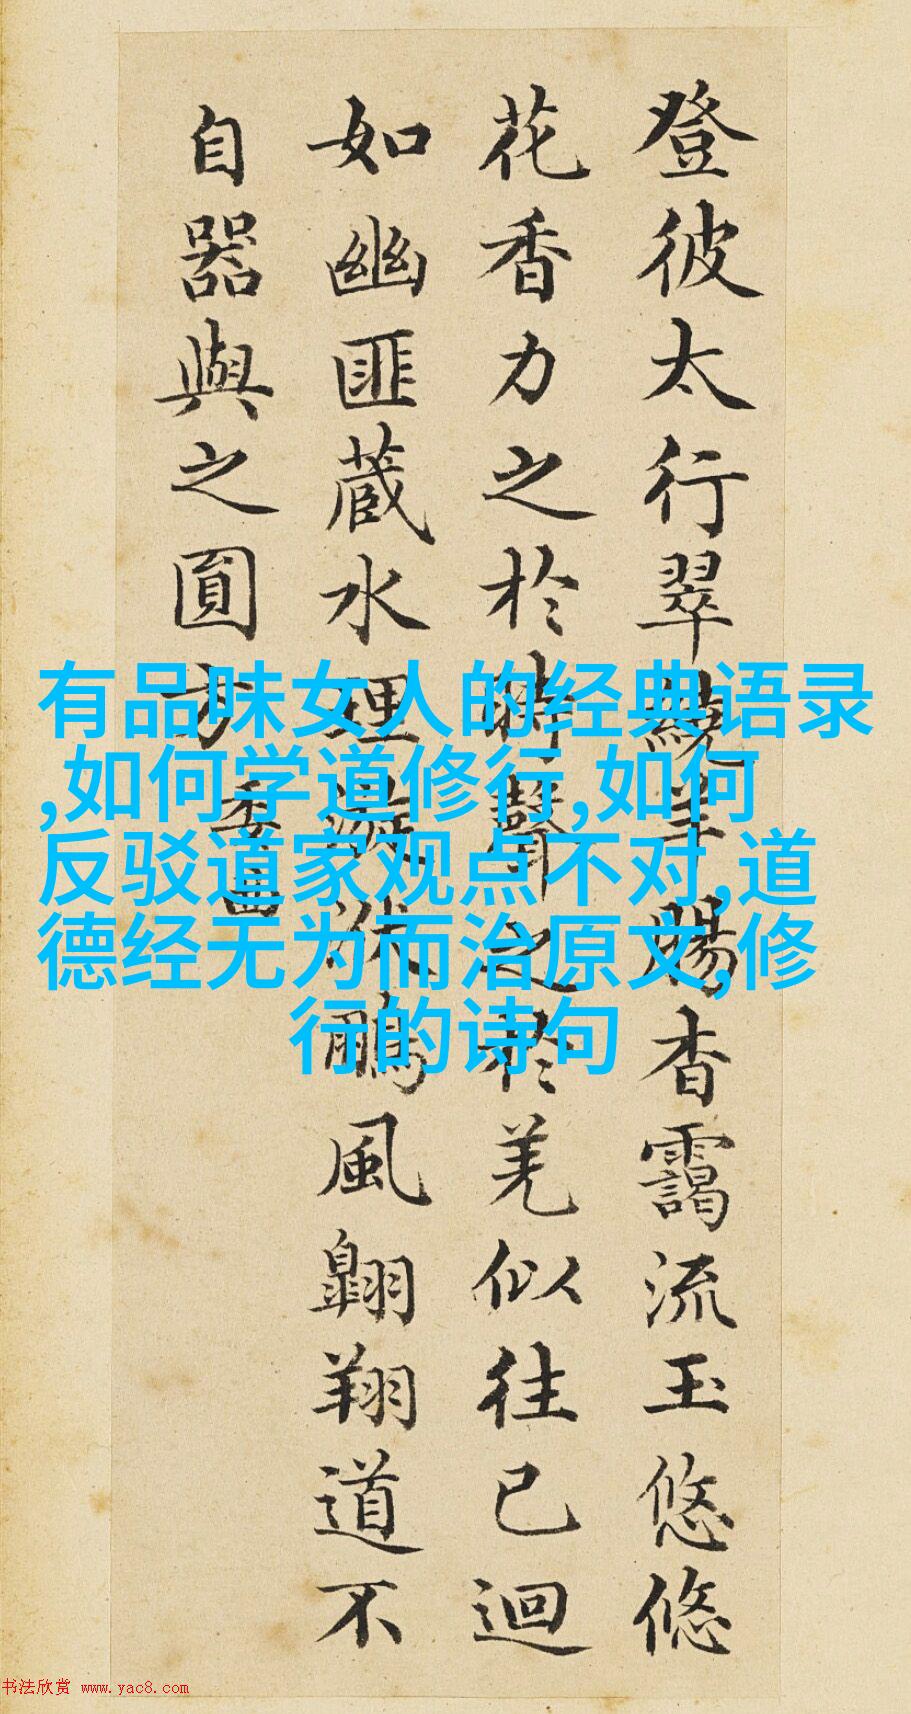 登彼太行翠繞羊腸杳靄流玉悠悠
花香力之於時聲之於羌似往已迴
如幽匪蔵水理漩洑鵬風翶翔道不
自器與之圓方
委曲
有品味女人的经典语录
,如何学道修行,如何
反驳道家观点不对,道
德经无为而治原文,修
行的诗句
书法欣赏 www.yac8.com